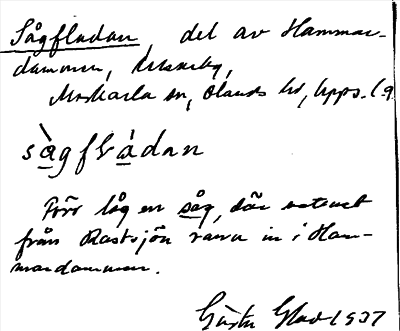 Sågfladan, del av Hammar-
dammen,
Morkarla sn, Olands hd, Upps. l.
sàgflàdan
Förr låg en såg, där vattnet
från Rastsjön rann in i Ham-
mardammen.
Gösta Glad 1937